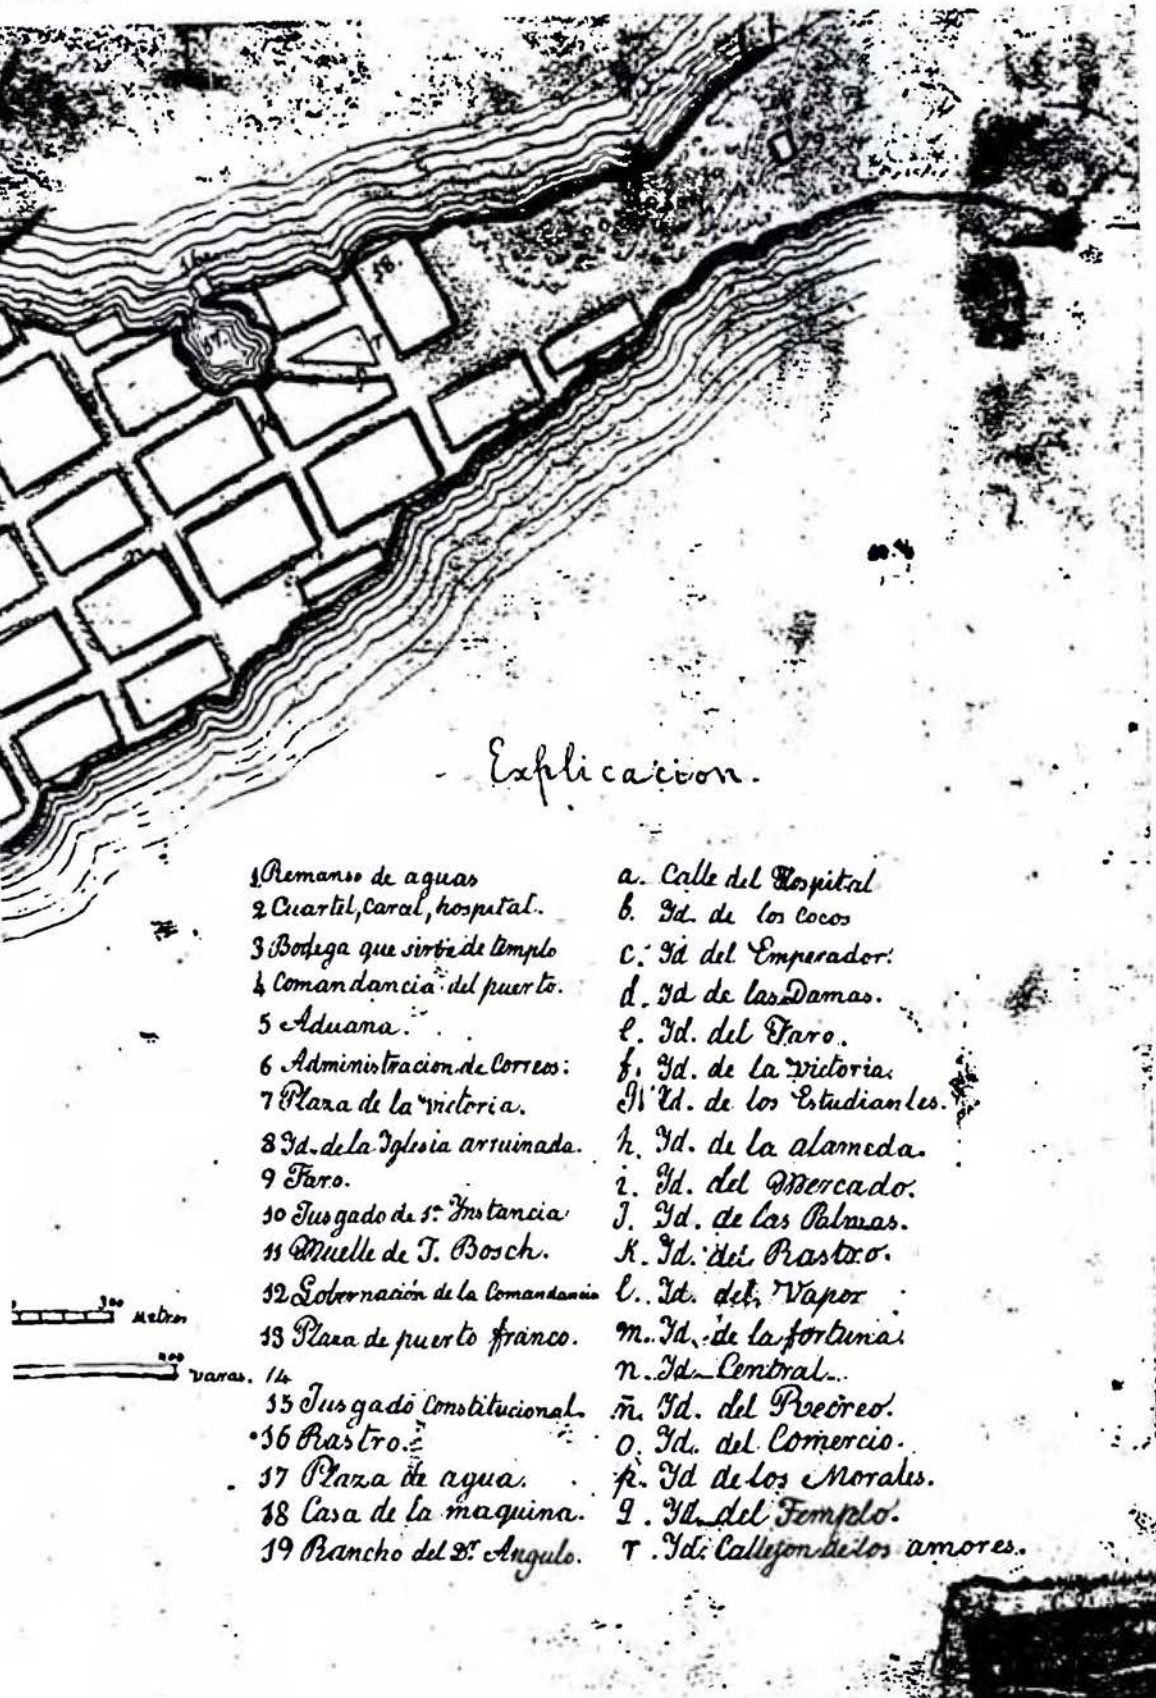 16
18.
17.
r
K
n
Explicacion.
1 Remanso de aguas
2 Cuartel, carcel, hospital.
3 Bodega que sirve de templo
4 Comandancia del puerto.
5 Aduana.
6 Administracion de Correos:
7 Plaza de la victoria.
8 Yd. de la Iglesia arruinada.
9 Faro.
10 Jusgado de 1ª Ynstancia
11 Muelle de J. Bosch.
12 Gobernación de la Comandancia
13 Plaza de puerto franco.
14
15 Jusgado Constitucional.
16 Rastro.
17 Plaza de agua.
18 Casa de la maquina.
19 Rancho del Dr. Angulo.
a. Calle del Hospital
b. Yd. de los Cocos
c. Yd del Emperador.
d. Yd de las Damas.
e. Yd. del Faro.
f. Yd. de la victoria.
Yd. de los Estudiantes.
h. Yd. de la alameda.
i. Yd. del Mercado.
J. Yd. de las Palmas.
K. Yd. del Rastro.
l. Yd. del Vapor
m. Yd. de la fortuna.
n. Yd. Central.
ñ. Yd. del Recreo.
o. Yd. del Comercio.
p. Yd de los Morales.
q. Yd. del Templo.
r. Yd. Callejon de los amores.
300 Metros
400 varas.